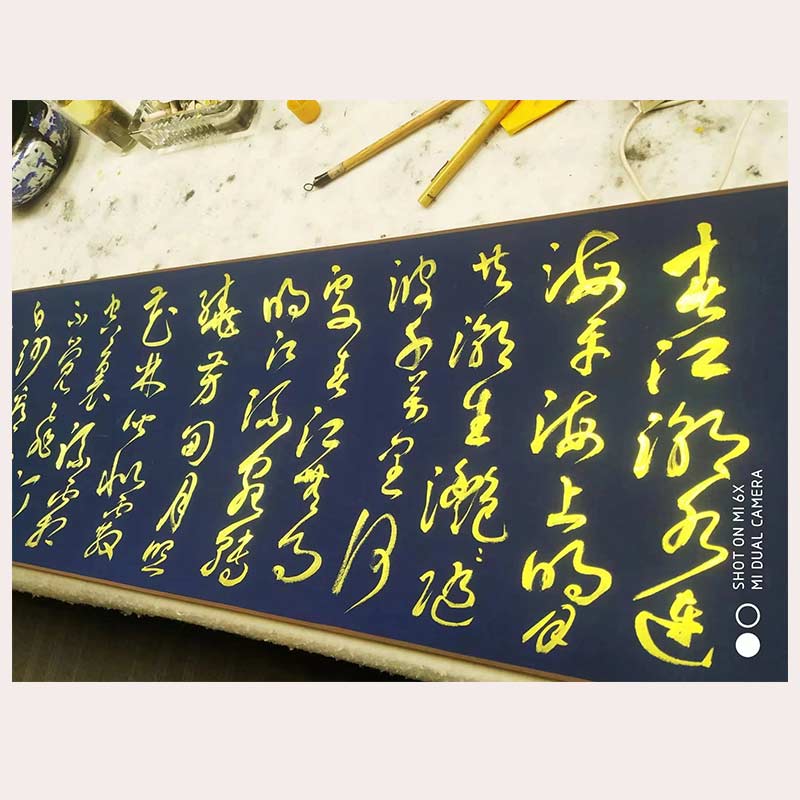 春江潮水連
海平海上明月
共潮生灩灩隨
波千萬里何
處春江無月
明江流宛轉
繞芳甸月照
花林皆似霰
空裏流霜
不覺飛
白沙看
SHOT ON MI 6X
MI DUAL CAMERA